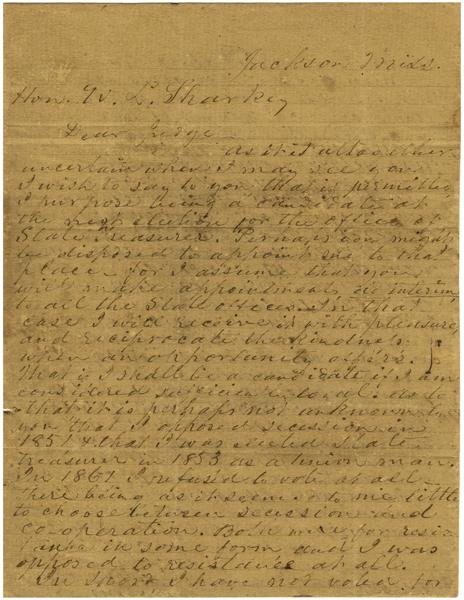 Jackson Miss.
Hon. W. L. Sharkey
Dear Judge
as it is altogether
uncertain when I may see you
I wish to say to you that if permitted
I purpose being a candidate at
the next election for the office of
State Treasurer. Perhaps you might
be disposed to appoint me to that
place for I assume that you
will make appointments ad interim
to all the State offices. In that
case I will receive it with pleasure,
and reciprocate the kindness
when an opportunity offers.
That is I shall be a candidate if I am
considered sufficiently loyal. As to
that it is perhaps not unknown to
you that I opposed secession in
1851 & that I was elected State
treasurer in 1853 as a Union man.
In 1861 I refused to vote at all
there being as it seemed to me little
to choose between secession and
co-operation. Both were for resis
tance in some form and I was
opposed to resistance at all.
In short I have not voted for